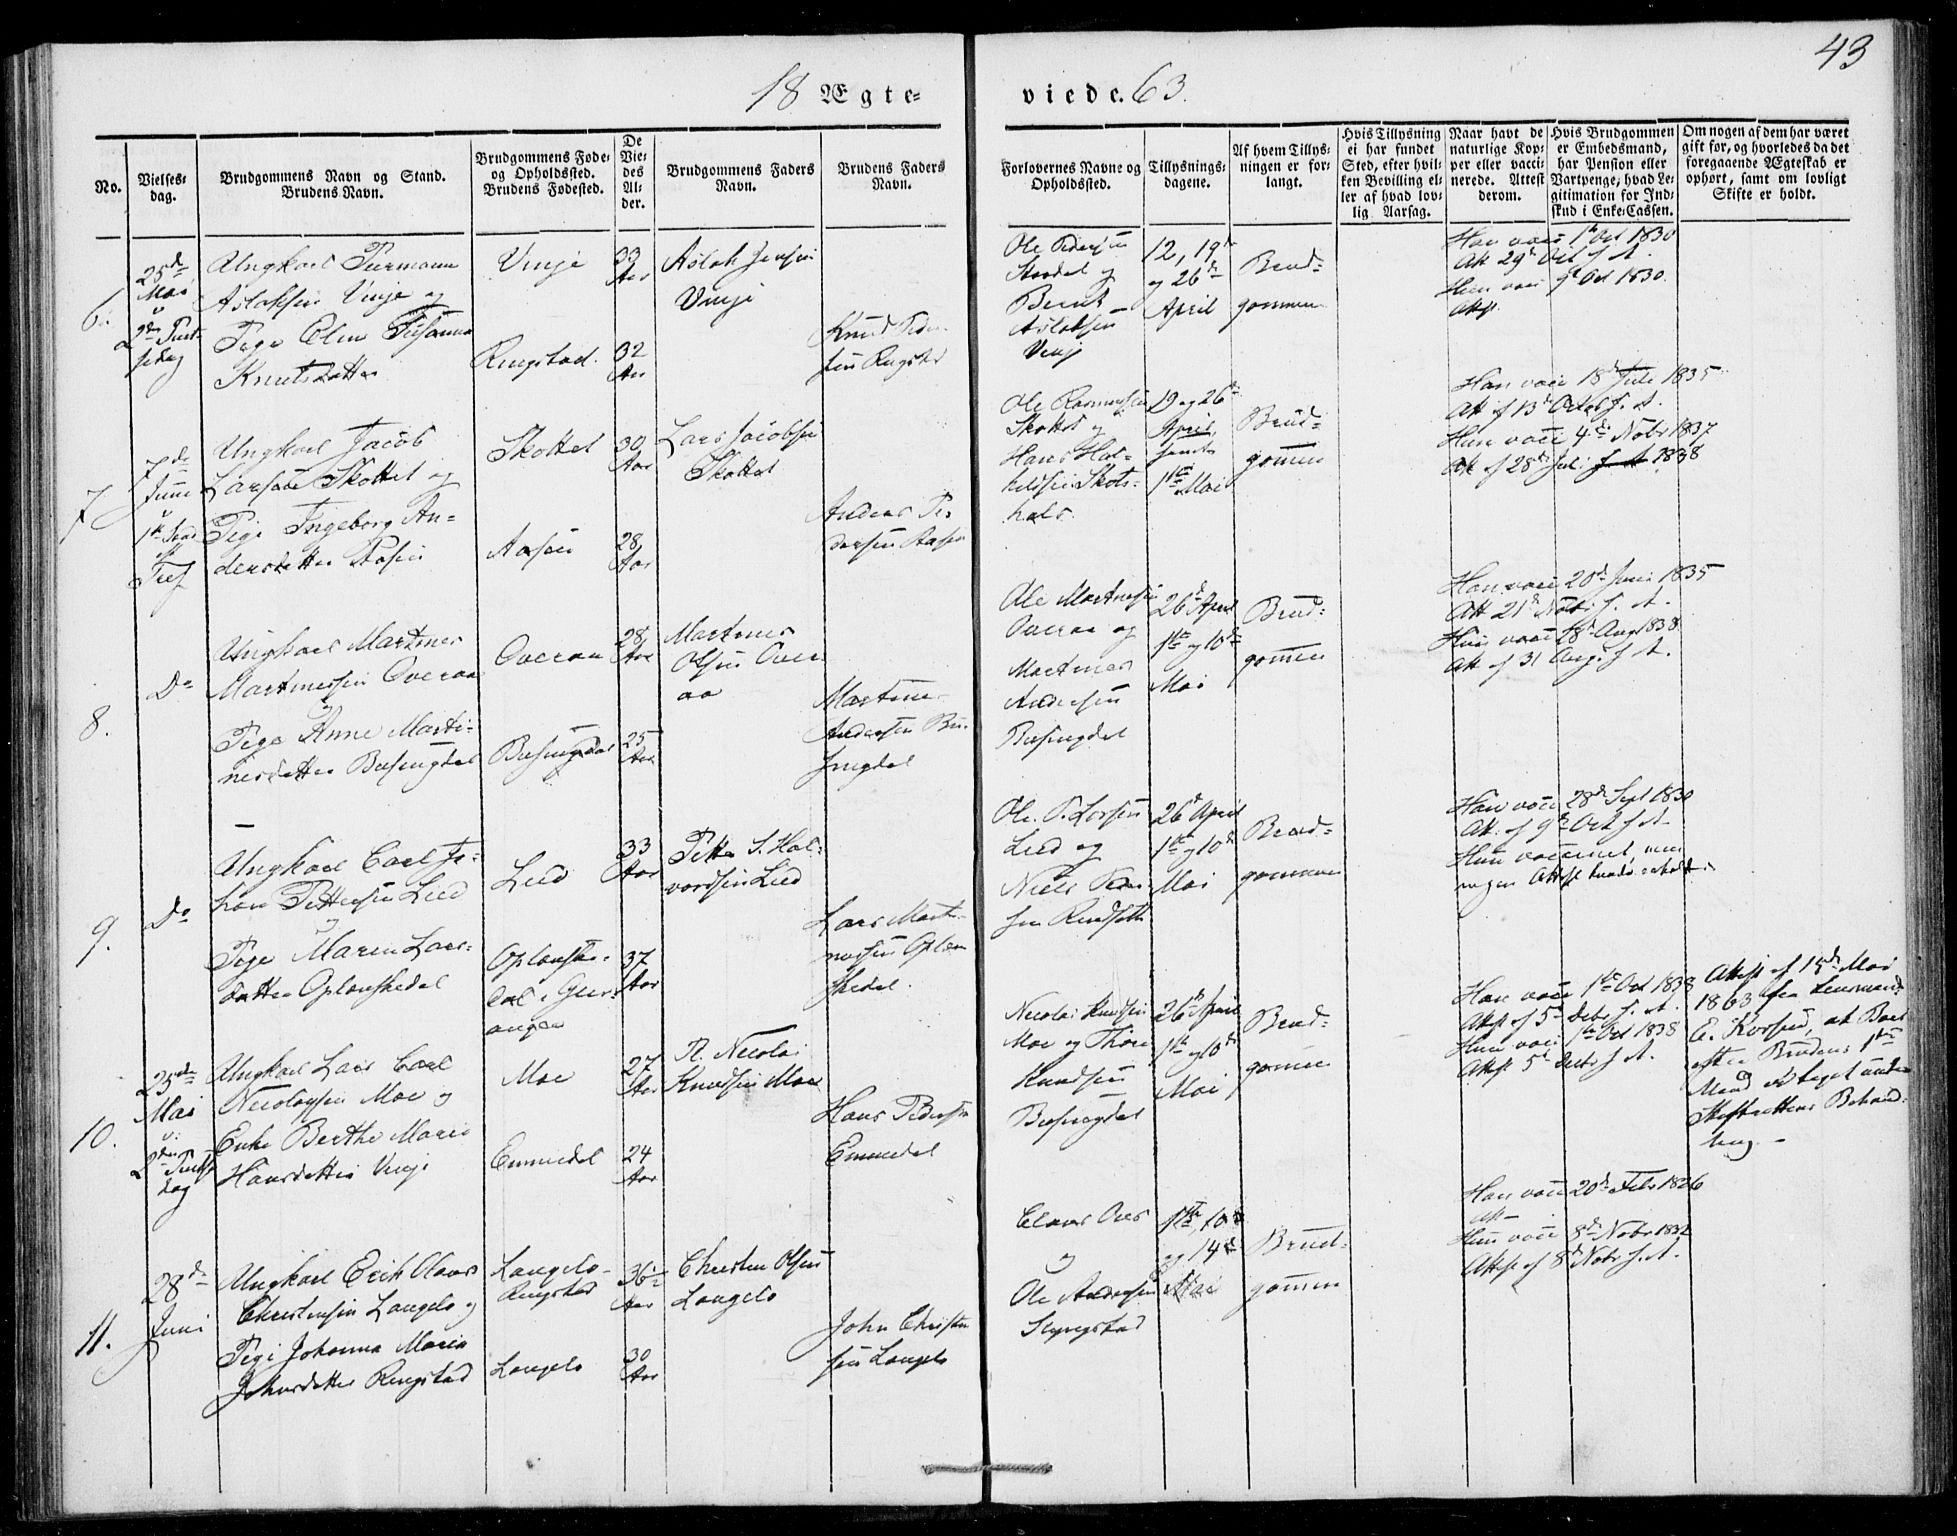 43
18 Ægte-
viede. 63.
No.
Vielses-
dag.
Brudgommens Navn og Stand.
Brudens Navn.
Brudgommens Føde-
og Opholdssted.
Brudens Fødested.
De
Vie-
des
Al-
der.
Brudgommens Faders
Navn.
Brudens Faders
Navn.
Forlovernes Navne og
Opholdssted.
Tillysnings-
dagene.
Af hvem Tillys-
ningen er for-
langt.
Hvis Tillysning
ei har fundet
Sted, efter hvil-
ken Bevilling el-
ler af hvad lov-
lig Aarsag.
Naar havt de
naturlige Kop-
per eller vacci-
nerede. Attest
derom.
Hvis Brudgommen
er Embedsmand,
har Pension eller
Vartpenge, hvad Le-
gitimation for Ind-
skud i Enke-Cassen.
Om nogen af dem har været
gift før, og hvorledes da det
foregaaende Ægteskab er
ophørt, samt om lovligt
Skifte er holdt.
6.
25de
Mai
2den Pint-
sedag
Ungkarl
Aslaksen Vinje og
Pige Elen Susanna
Knutsdatter
Vinje
Ringstad
33
Aar
32
Aar
Aslak Jensen
Vinje
Knud Peder-
sen Ringstad
Ole Pedersen
Stordal og
Bernt
Aslaksen
Vinje
12, 19de
og 26de
April
Brud-
gommen
Han vacc 1st Oct 1830
Att 29de Oct s. A.
Hun vacc 9de Oct 1830.
Attest
7
7de
Juni
1st Søn
Tref
Ungkarl Jacob
Larsen Skottet og
Pige Ingeborg An-
dersdatter Aasen
Skottet
Aasen
30
Aar
28
Aar
Lars Jacobsen
Skottet
Anders Pe-
dersen Aasen
Ole Rasmussen
Skottet og
Hans Hal-
kelsen Skots-
hals.
19 og 26de
April
samt
1ste Mai
Brud-
gommen
Han vacc 18de Juli 1835
Att af 13de Octbr s. A.
Hun vacc 4de Nobr 1837
Att af 28de Juli 1838
8.
Do
Ungkarl Martines
Martinessen Overaa
og
Pige Anne Marti-
nesdatter Busengdal
Overaa
Busengdal
28
Aar
25
Aar
Martines
Olsen Over-
aa
Martines
Andersen Bu-
sengdal
Ole Martinesen
Overaa og
Martines
Andersen
Busengdal
26de April
1ste og 10de
Mai
Brud-
gommen
Han vacc 20de Juni 1835
Att 21de Nobr s. A.
Hun vacc 28de Aug 1838
Att af 31 Aug s. A.
9.
Do
Ungkarl Carl Jo-
han Pettersen Lied
og
Pige Maren Lars-
datter Oplanskedal
Lied
Oplanske-
dal i Geir-
anger
33
Aar
37
Aar
Petter S. Hal-
vordsen Lied
Lars Marti-
nussen Oplan-
skedal.
Ole P. Larsen
Lied og
Niels Peder-
sen
26de April
1ste og 10de
Mai
Brud-
gommen
Han vacc 28de Sept 1830
Att. af 9de Oct s. A.
Hun vaccineret, men
ingen Attest kunde erholdes
10.
25de
Mai
2den Pintse-
dag
Ungkarl Lars Carl
Nicolaysen Moe og
Enke Berthe Marie
Hansdatter Vinje
Moe
Emmedal
27
Aar
24
Aar
P. Nicolai
Knudsen Moe
Hans Pedersen
Emmedal
Nicolai Knudsen
Moe og Thore
Knudsen
Busengdal
26de April
1ste og 10de
Mai
Brud-
gommen
Han vacc 1ste Oct 1838
Attest af 5te Debr s. A.
Hun vacc 1ste Oct 1838
Attest 5te Debr s. A.
Attest af 15de Mai
1863 fra Lensmand
E. Korsnes, at Boet
efter Brudens 1ste
Mand er taget under
Skifterettens Behand-
ling. -
11.
28de
Juni
Ungkarl Erik Olaus
Christensen Langelo og
Pige Johanna Maria
Johnsdatter Ringstad
Langelo-
Ringstad
Langelo
36
Aar
30
Aar
Christen Olsen
Langelo
John Christen-
sen Langelo
Claus Aas
og
Ole Andersen
1ste, 10de
og 14de
Mai
Brud-
gommen
Han vacc 20de Febr 1826
Att
Hun vacc 8de Nobr 1832
Attest af 8de Nobr s. A.